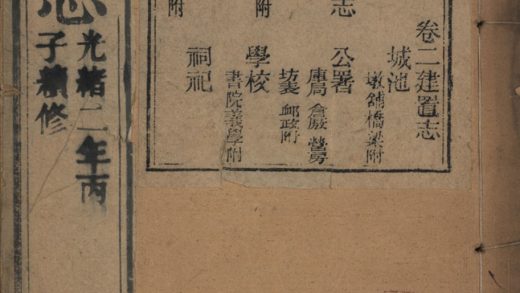 卷二建置志
城池
墩鋪橋梁附
公署
庫局 倉廒 營房
坊表 郵政附
學校
書院義學附
祠祀
志
附
附
志
光緒二年丙
子續修